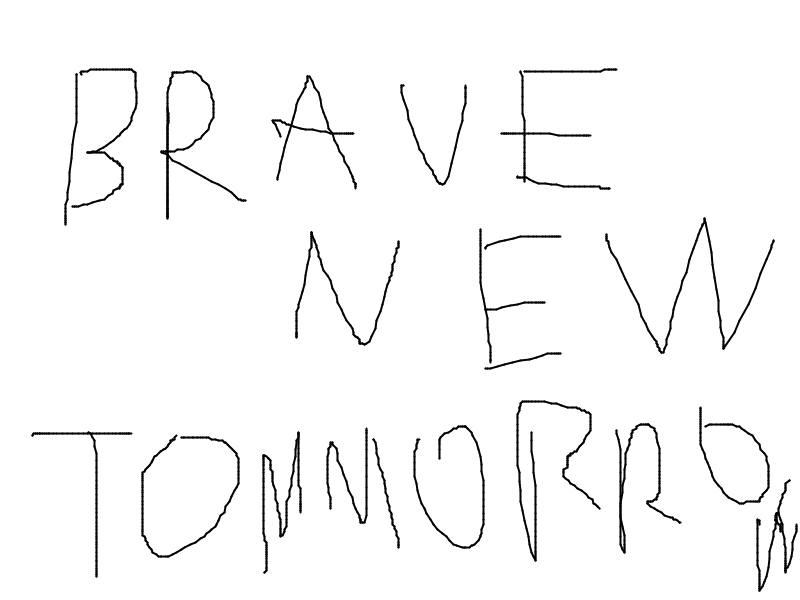 BRAVE
NEW
TOMMORROW